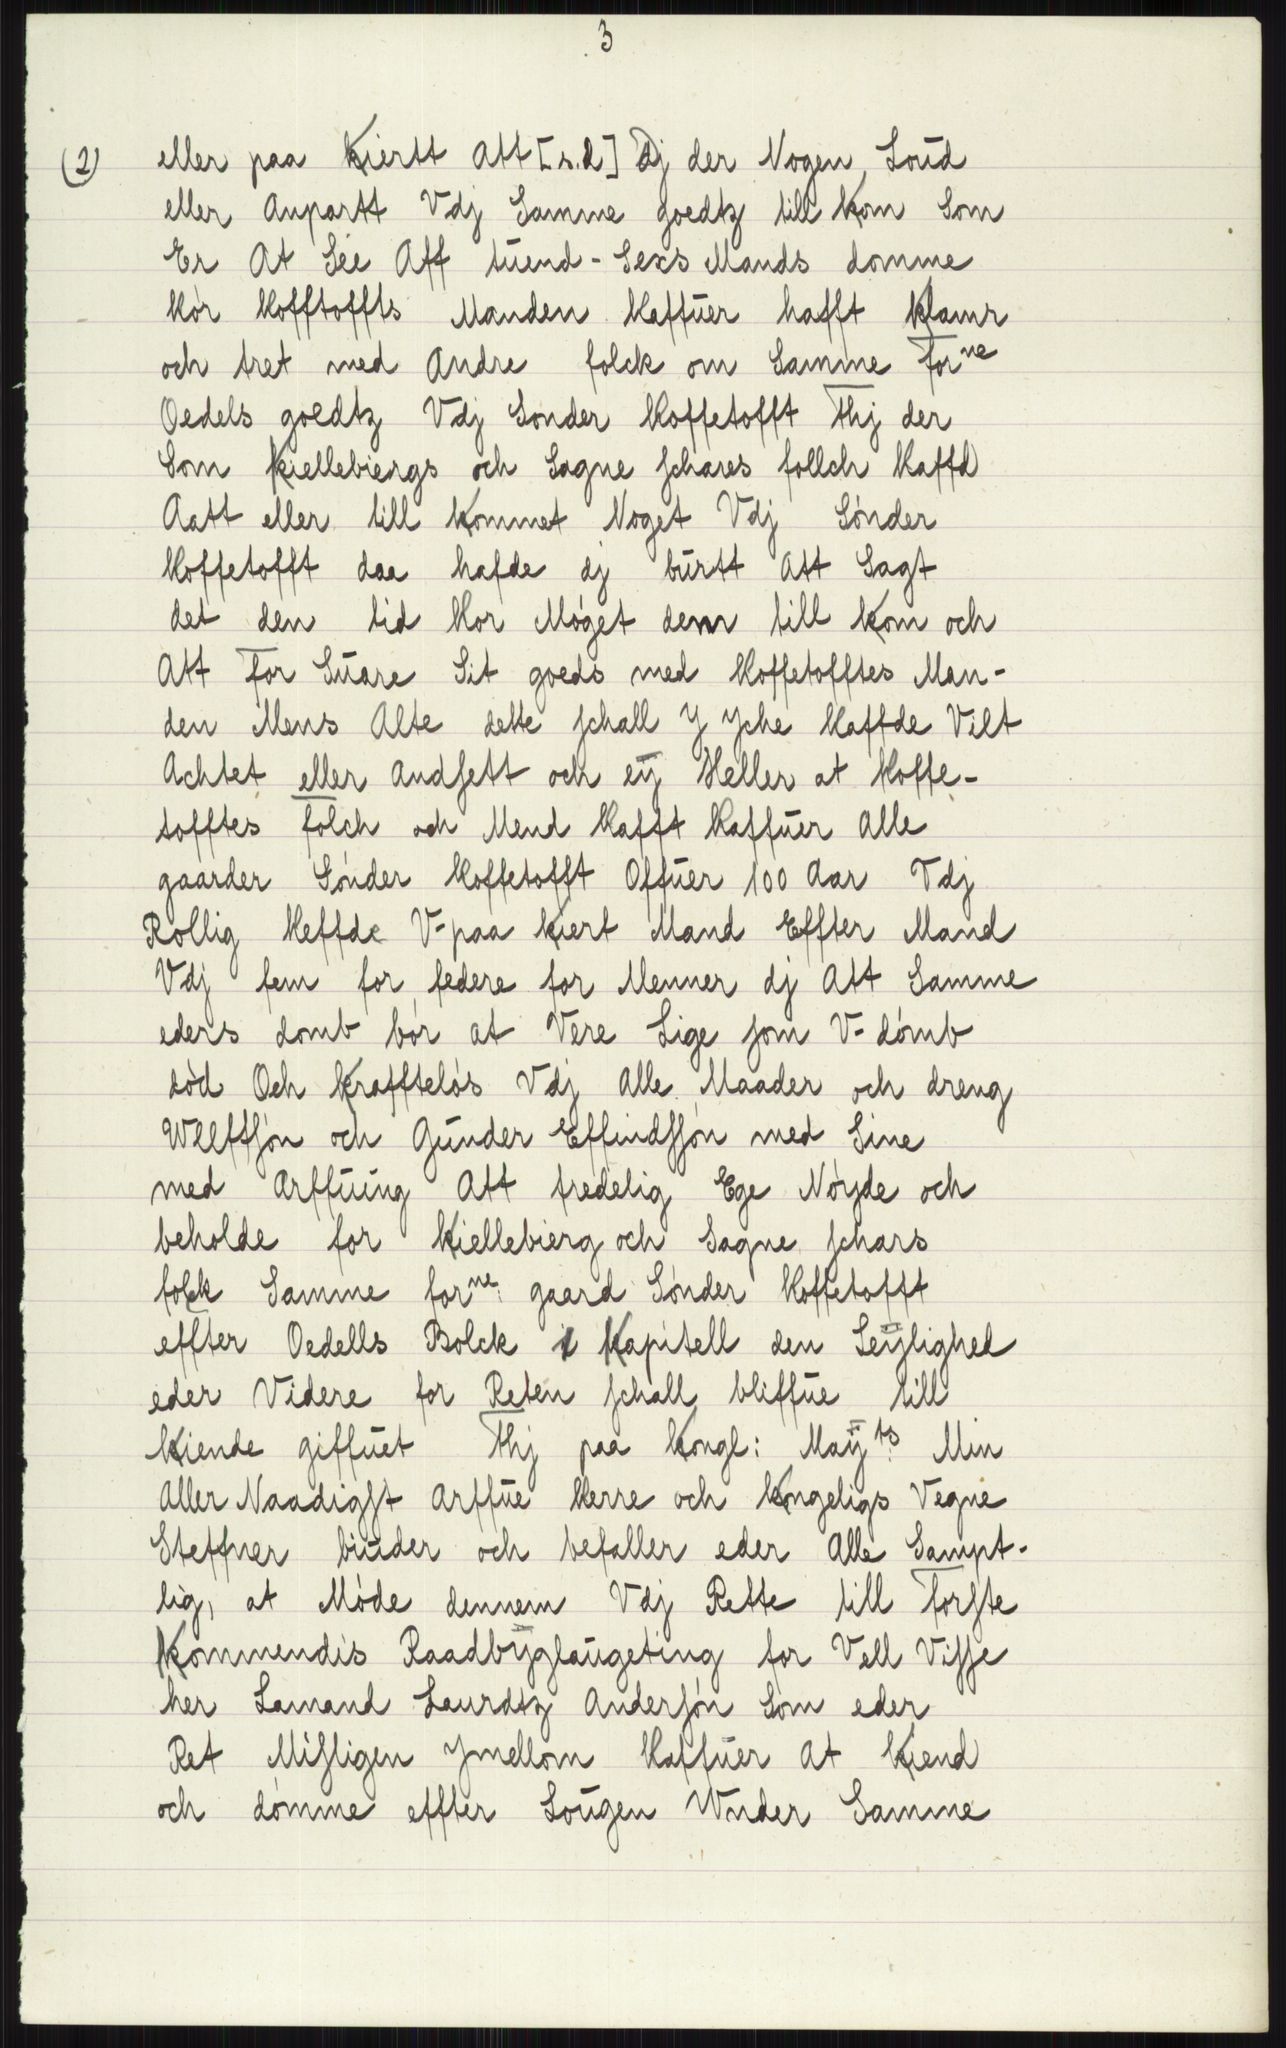 3
(2) eller paa Kiertt Att [s.d] Dj der Nogen Loŭd
eller Anpartt Vdj Samme goedtz till Kom Som
Er At See Aff tŭend-Sexs Mands domme
Hór Hofftoffts Manden Haffŭer hafft Klamr
och tret med Andre folck om Samme forne
Oedels goedtz Vdj Sonder Hoffetofft Thj der
Som Kiellebiergs och Sagne schares follch Haffd
Aatt eller till Kommet Noget Vdj Sónder
Hoffetofft daa hafde dj bŭrtt Att Sagt
det den tid Hor Móget dem till Kom och
Att for Sŭare Sit goeds med Hoffetofftes Man-
den Mens Alte dette schall Y Yche Haffde Vilt
Achtet eller Andsett och eÿ Heller at Hoffe-
tofftes folch och Mend Hafft Haffŭer Alle
gaarder Sónder Hoffetofft Offŭer 100 Aar Vdj
Rollig Heffde V-paa Kiert Mand Effter Mand
Vdj fem for federe for Menner dj Att Samme
eders domb bór at Vere Lige som V-dómb
dód Och Kraffteløs Vdj Alle Maader och dreng
Wllffsón och Gŭnder Effindssón med Sine
med Arffŭing Att fredelig Ege Nóyde och
beholde for Kiellebierg och Sagne schars
folck Samme forne: gaard Sónder Hoffetofft
effter Oedells Bolck i Kapitell den Leÿlighed
eder Videre for Reten schall bliffŭe till
Kiende giffŭet Thj paa Kongl: Maÿts Min
Aller Naadigst Arffŭe Herre och Kongeligs Vegne
Steffner biŭder och befaller eder Alle Sampt-
lig, at Móde dennem Vdj Rette till Forste
Kommendis Raadbÿglaŭgeting for Vell Visse
her Lamand Laurdtz Andersón Som eder
Ret Misligen Ymellom Haffŭer At Kiend
och dómme effter Loŭgen Wnder Samme